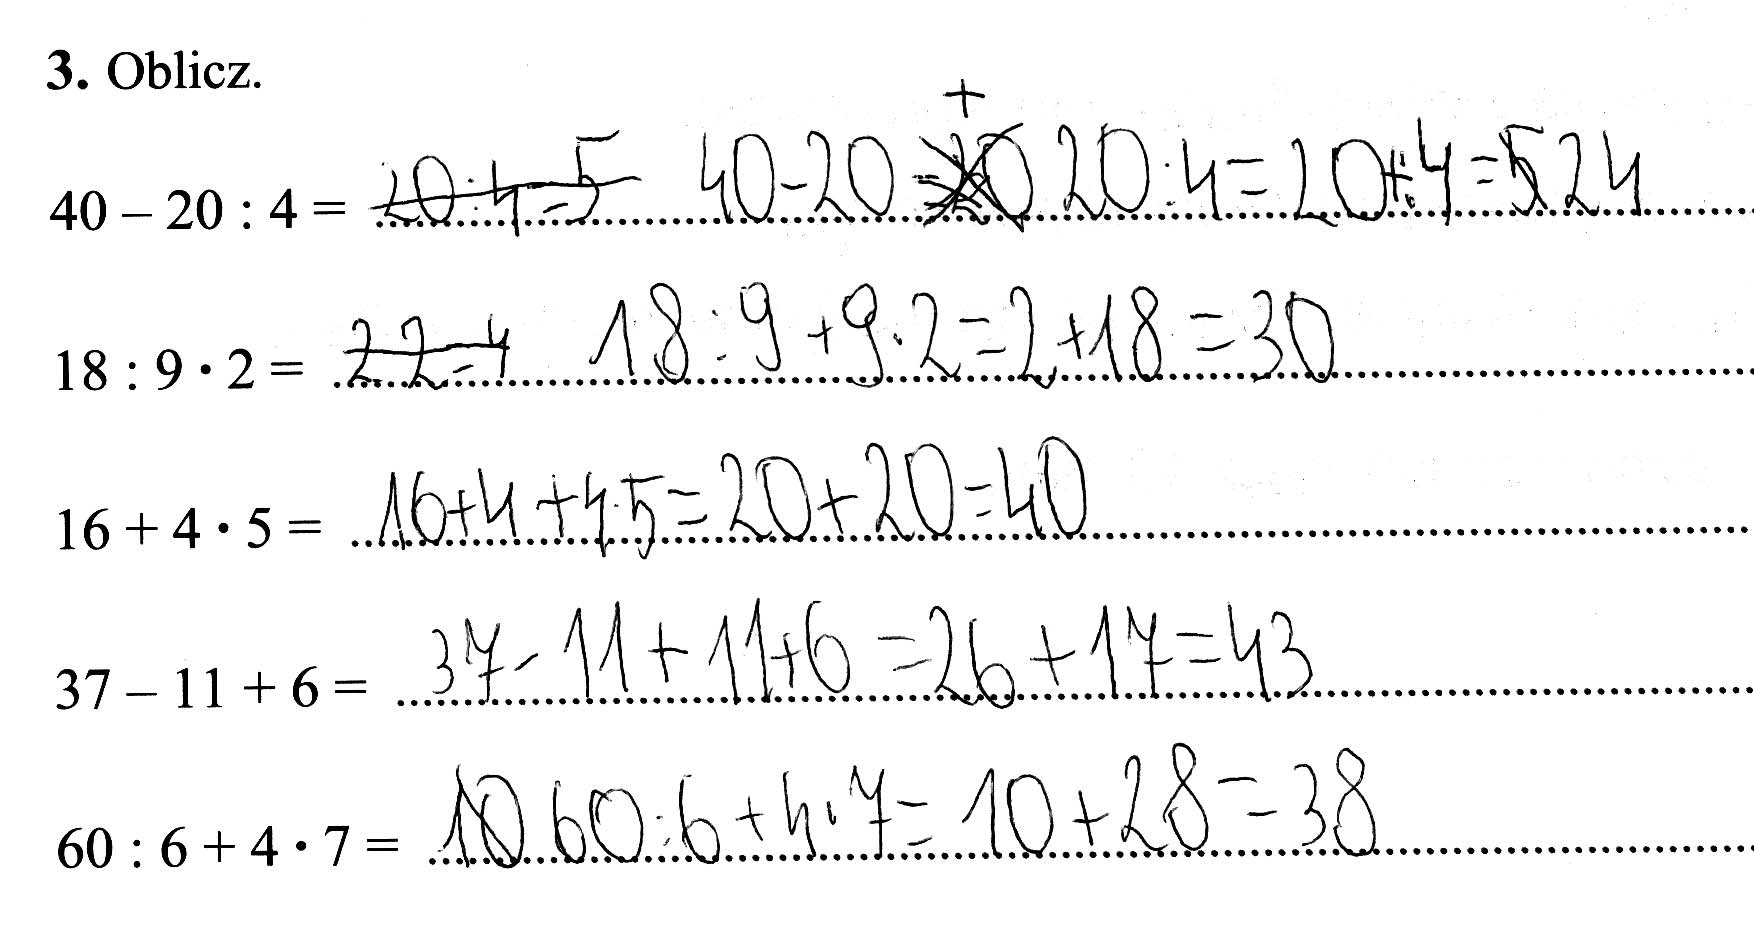 3. Oblicz.
+
40 – 20 : 4 = 20:4=5 40-20 20:4=20+4=524
18 : 9 • 2 = 2 2=4 18:9+9·2=2+18=30
16 + 4 • 5 = 16+4+4·5=20+20=40
37 – 11 + 6 = 37-11+11+6=26+17=43
60 : 6 + 4 • 7 = 10 60:6+4·7=10+28=38